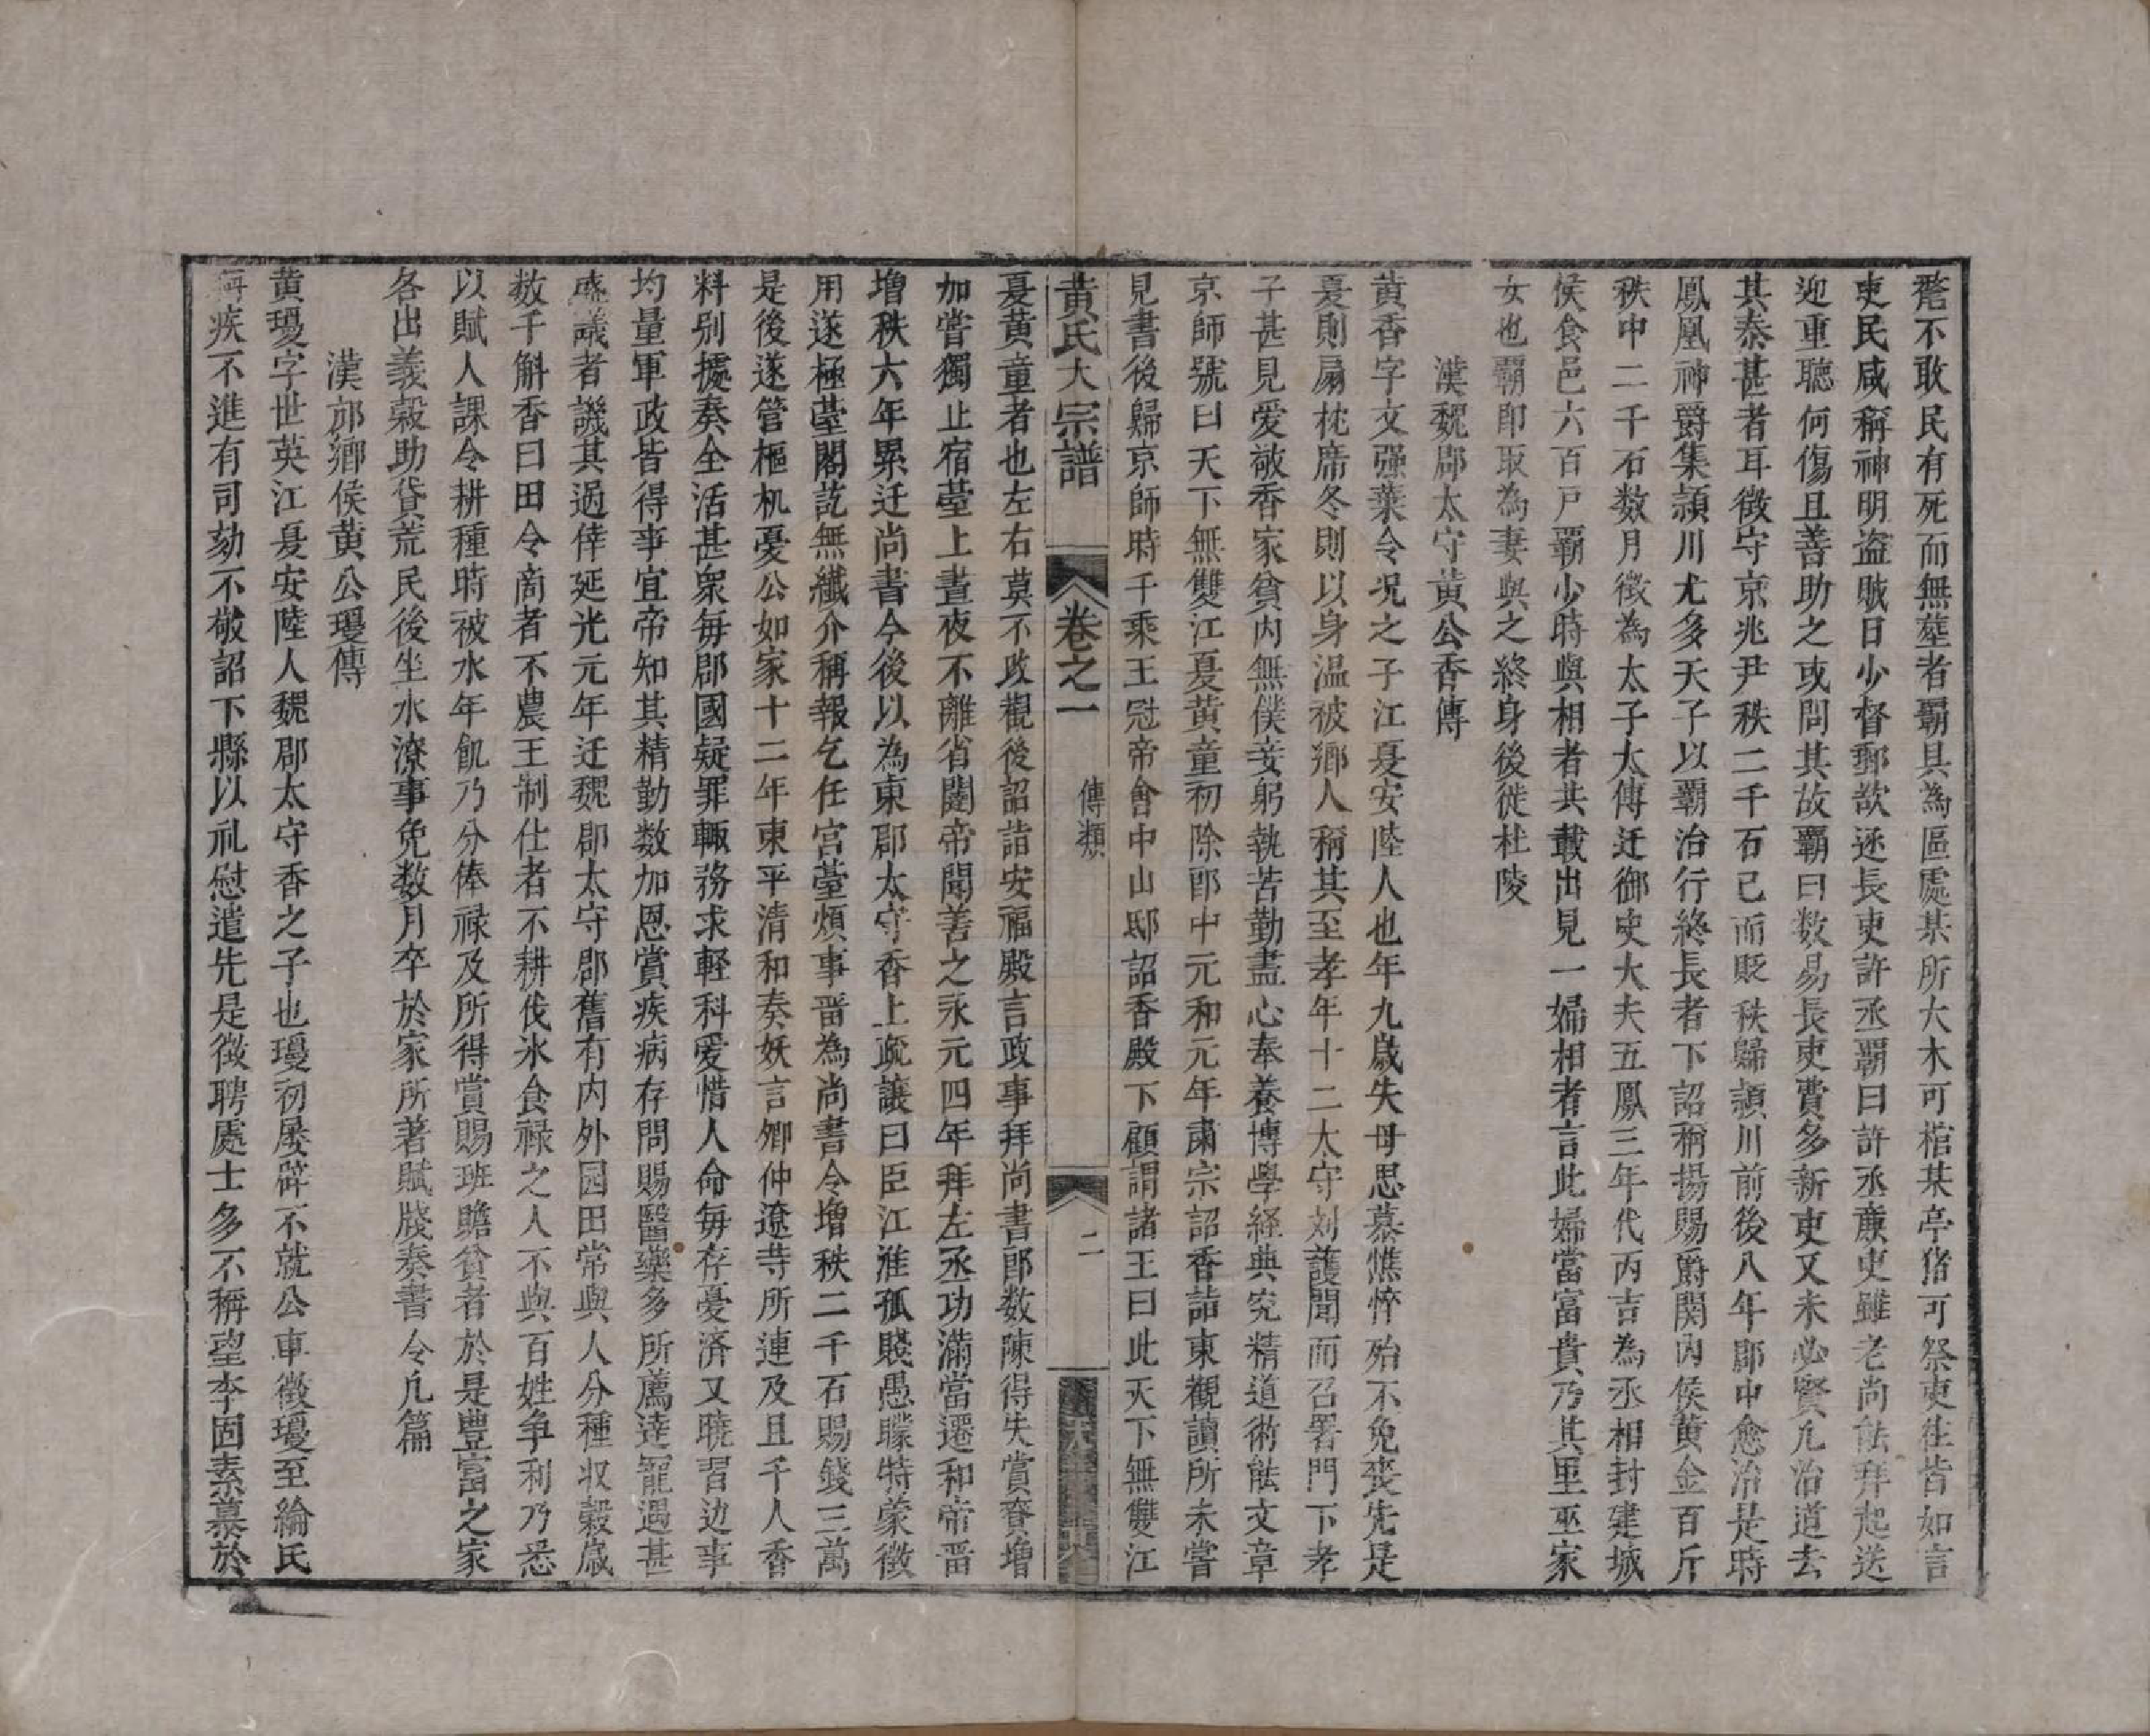 毫不敢民有死而無塟者霸具為區處某所大木可棺某亭猪可祭吏往皆如言
吏民咸稱神明盗賊日少督郵欲逐長吏許丞霸曰許丞廉吏雖老尚能拜起送
迎重聽何傷且善助之或問其故霸曰数易長吏費多新吏又未必賢凡治道去
其泰甚者耳徵守京兆尹秩二千石已而貶秩歸頴川前後八年郡中愈治是時
鳳凰神爵集頴川尤多天子以霸治行終長者下詔稱揚賜爵関内侯黄金百斤
秩中二千石数月徵為太子太傳迁御史大夫五鳳三年代丙吉為丞相封建城
侯食邑六百戸霸少時與相者共載出見一婦相者言此婦當富貴乃其里巫家
女也霸即取為妻與之終身後徙杜陵
漢魏郡太守黄公香傳
黄香字文强葉令况之子江夏安陸人也年九歲失母思慕憔悴殆不免喪先是
夏則扇枕席冬則以身温被鄉人稱其至孝年十二太守刘護聞而召署門下孝
子甚見爱敬香家貧内無僕妾躬執苦勤盡心奉養博學経典究精道術能文章
京師號曰天下無雙江夏黄童初除郎中元和元年肅宗詔香詣東觀讀所未嘗
見書後歸京師時千乘王冠帝會中山邸詔香殿下顧謂諸王曰此天下無雙江
黄氏大宗譜 卷之一 傳類 二
夏黄童者也左右莫不改觀後詔詣安福殿言政事拜尚書郎数陳得失賞賚增
加嘗獨止宿臺上晝夜不離省闥帝聞善之永元四年拜左丞功滿當遷和帝畱
增秩六年累迁尚書令後以為東郡太守香上疏讓曰臣江淮孤賤愚矇特蒙徵
用遂極臺閣訖無纖介稱報乞任宫臺煩事畱為尚書令增秩二千石賜錢三萬
是後遂管樞机憂公如家十二年東平清和奏妖言卿仲遼等所連及且千人香
料别據奏全活甚衆每郡國疑罪輙務求軽科爱惜人命每存憂済又曉習边事
均量軍政皆得事宜帝知其精勤数加恩賞疾病存問賜醫藥多所薦逹寵遇甚
盛議者譏其過倖延光元年迁魏郡太守郡舊有内外园田常與人分種収榖歲
数千斛香曰田令商者不農王制仕者不耕伐冰食禄之人不與百姓争利乃悉
以賦人課令耕種時被水年飢乃分俸禄及所得賞賜班贍貧者於是豊富之家
各出義榖助貸荒民後坐水潦事免数月卒於家所著賦牋奏書令凡篇
漢邟鄉侯黄公瓊傳
黄瓊字世英江夏安陸人魏郡太守香之子也瓊初屡辟不就公車徵瓊至綸氏
稱疾不進有司劾不敬詔下縣以礼慰遣先是徵聘處士多不稱望李固素慕於